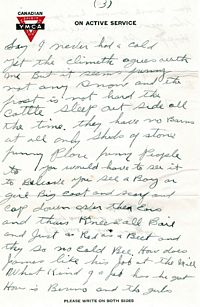 (3)
CANADIAN
YMCA
ON ACTIVE SERVICE
Say I never had a cold
yet the climate agrees with
me But it seems funny
not any snow and the
frost is not hard the
Cattle sleep out side all
the time. they have no Barns
at all only sheds of stone
funny Place funny People
to you would have to see it
to Beleave you see a Boy or
girl Big coat and scarf and
cap down over their Ears
and their Knees all Bare
and Just as Red as a Beet and
they so no cold Bee, How does
James like his Job at the Mill
What Kind of a Job has he got
How is and the girls
PLEASE WRITE ON BOTH SIDES